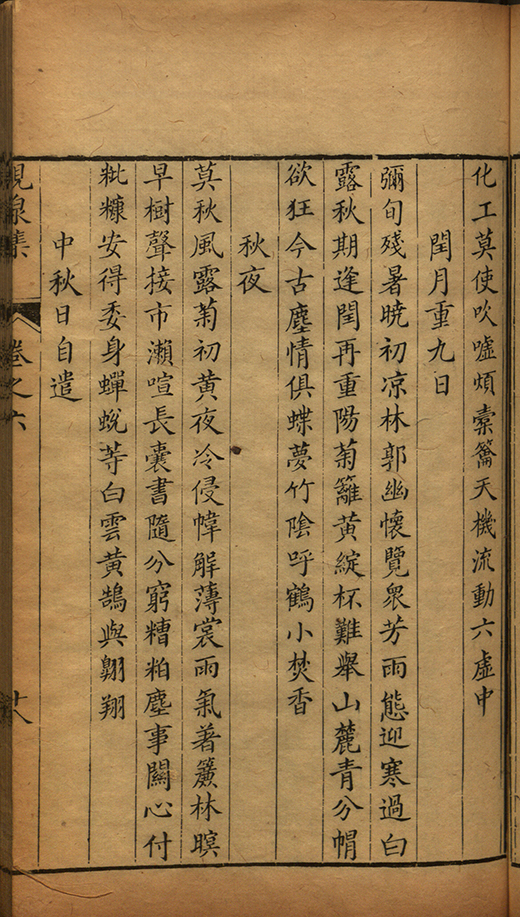 化工莫使吹噓煩橐籥天機流動六虛中
閏月重九日
彌旬殘暑曉初凉林郭幽懷覽衆芳雨態迎寒過白
露秋期逢閏再重陽菊籬黃綻杯難舉山麓青分帽
欲狂今古塵情俱蝶夢竹陰呼鶴小焚香
秋夜
莫秋風露菊初黃夜冷侵幃解薄裳雨氣著簾林暝
早樹聲接市瀨喧長囊書隨分窮糟粕塵事關心付
粃糠安得委身蟬蛻等白雲黃鵠與翺翔
中秋日自遣
集
卷之六